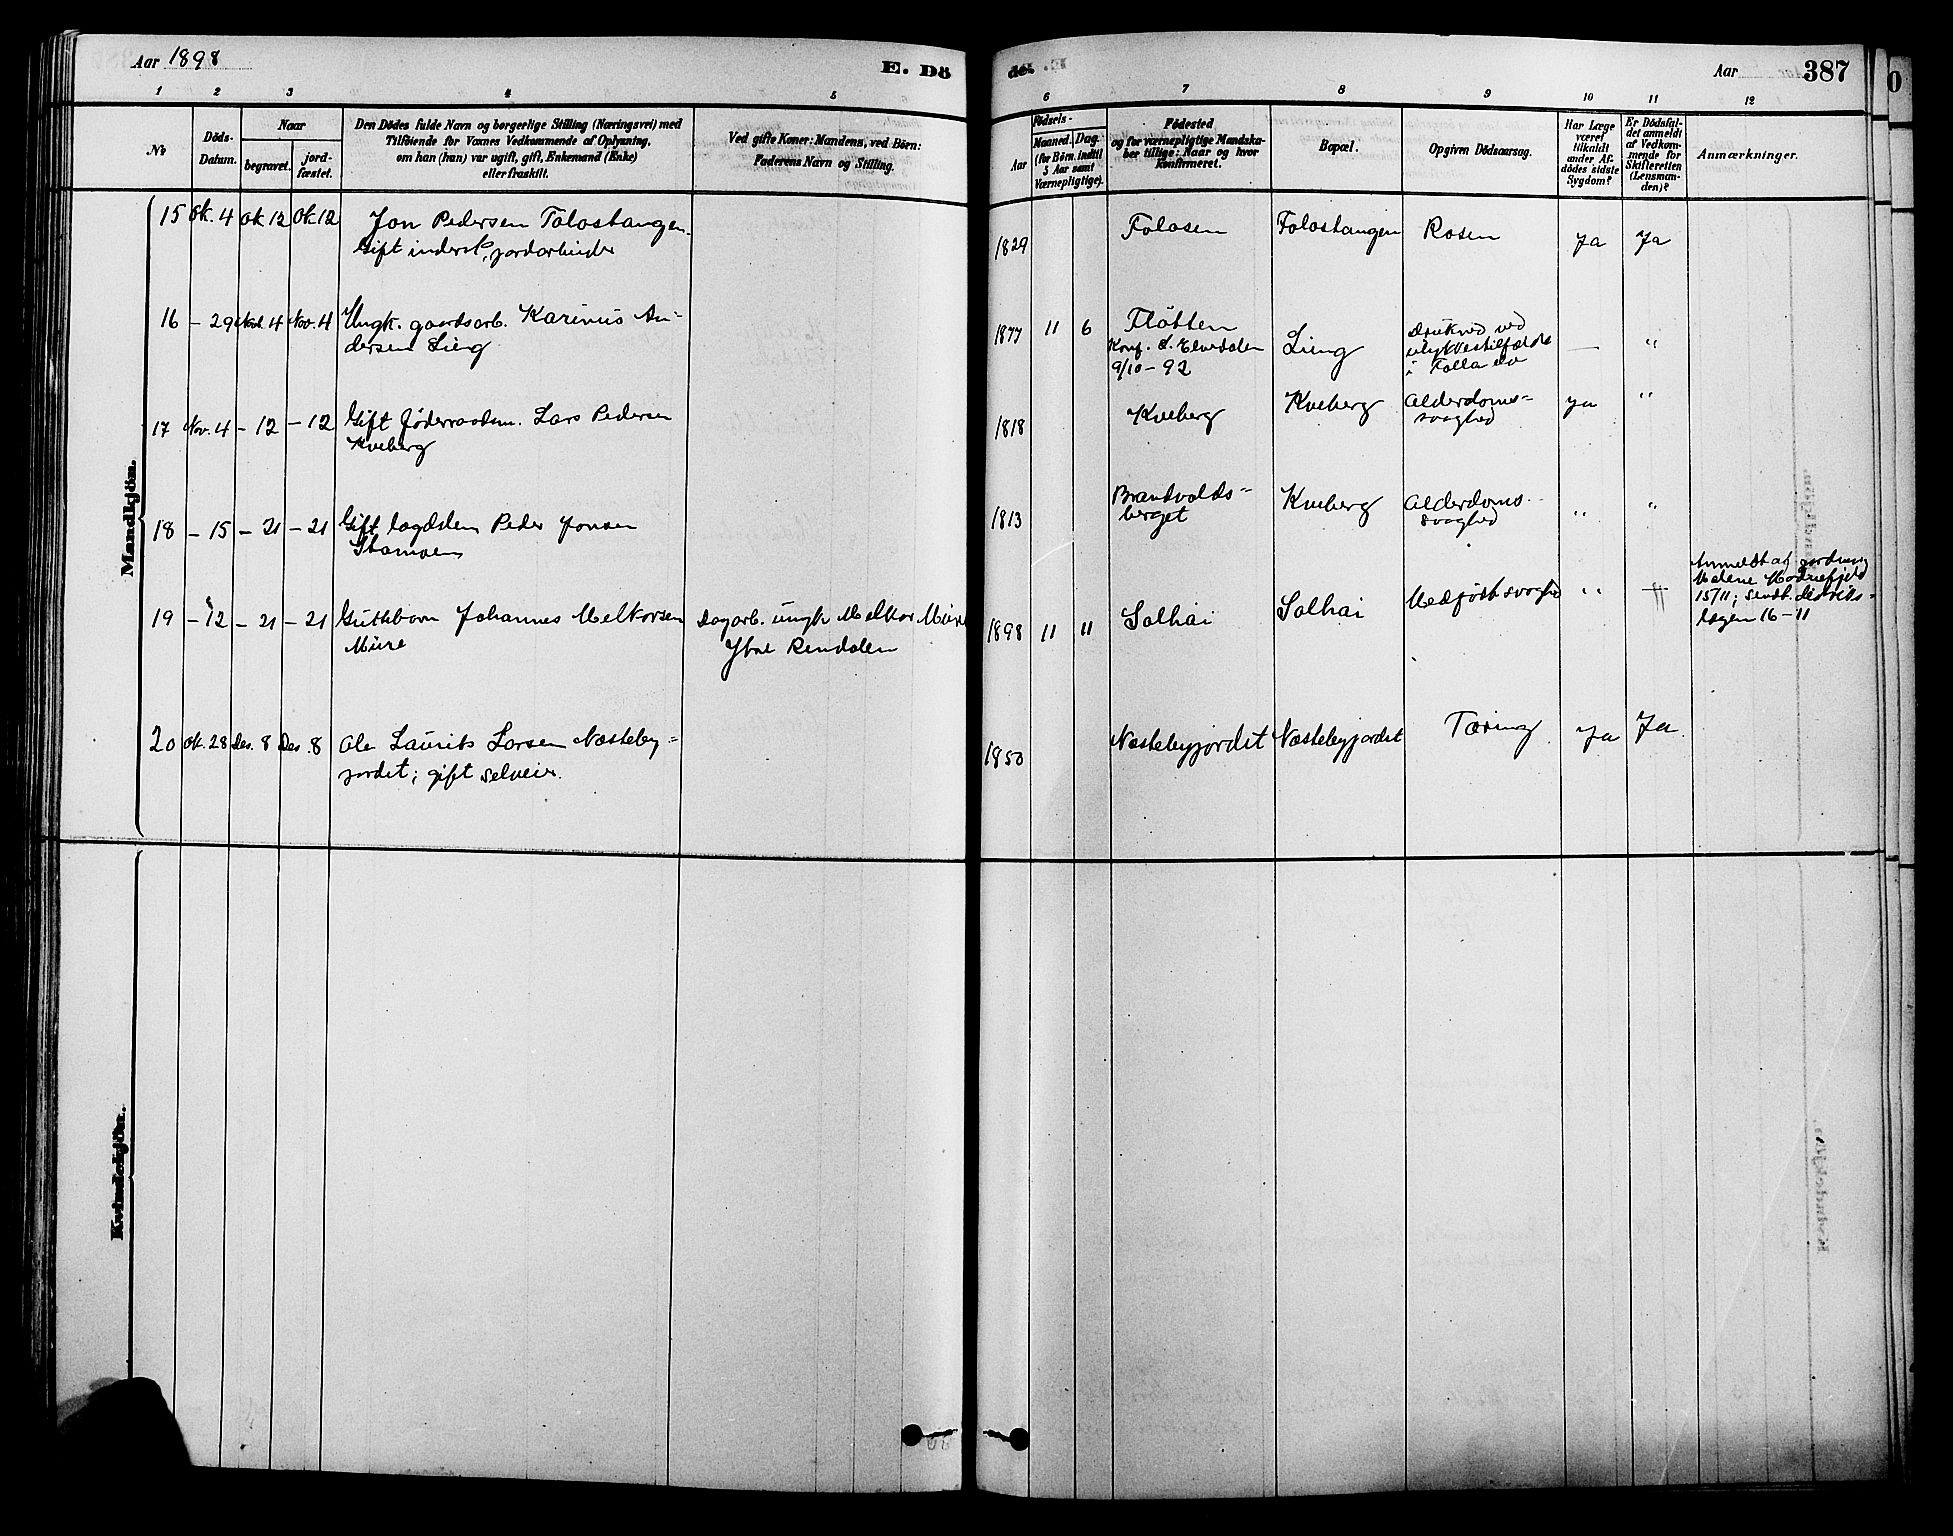 Aar 1898
E. Dö
de.
Aar
387
1 2 3 4 5 6 7 8 9 10 11 12
No
Döds-
Datum.
Naar
begravet.
jord-
fæstet.
Den Dödes fulde Navn og borgerlige Stilling (Næringsvei) med
Tilföiende for Voxnes Vedkommende af Oplysning,
om han (hun) var ugift, gift, Enkemand (Enke)
eller fraskilt.
Ved gifte Koner: Mandens, ved Börn:
Faderens Navn og Stilling.
Födsels-
Aar
Maaned. Dag.
(for Börn indtil
5 Aar samt
Værnepligtige).
Födested
og for værnepligtige Mandska-
ber tillige: Naar og hvor
konfirmeret.
Bopæl.
Opgiven Dödsaarsag.
Har Læge
været
tilkaldt
under Af-
dödes sidste
Sygdom?
Er Dödsfal-
det anmeldt
af Vedkom-
mende for
Skifteretten
(Lensman-
den)?
Anmærkninger.
Mandkjön.
15 Ok. 4 Ok 12 Ok. 12 Jon Pedersen Folostangen.
Gift indersk, jordarbeider
1829 Folosen Folostangen Rosen Ja Ja
16 - 29 Nov. 4 Nov. 4 Ungk. gaardsarb. Karinus An-
dersen Lieng
1877 11 6 Fløtten
Konf. S. Elvedalen
9/10 - 92
Lieng
Druknet ved
ulykkestilfælde
i Folla elv
— "
17 Nov. 4 - 12 - 12 Gift føderaadsm. Lars Pedersen
Kveberg
1818 Kveberg Kveberg Alderdoms-
svaghed
ja "
18 - 15 - 21 - 21 Gift lægdslem Peder Jonsen
Stamoen
1813 Brandvolds-
berget
Kveberg Alderdoms-
svaghed
" "
19 - 12 - 21 - 21 Guttebarn Johannes Melkorsen
Mure
Dagarb. ungk. Melkor Mure
Ytre Rendalen
1898 11 11 Solhai Solhai Medfødt svaghed "
Anmeldt af jordmor
15/11; sendt distrikts-
lægen 16-11
20 Ok. 28 Des. 8 Des. 8 Ole Laurits Larsen Næsteby-
jordet; gift selveier.
1850 Næstebyjordet Næstebyjordet Tæring Ja Ja.
Kvindekjön.